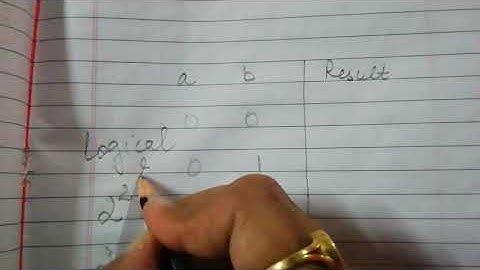 a b Result
0 0
Logical
& 0 1
2²